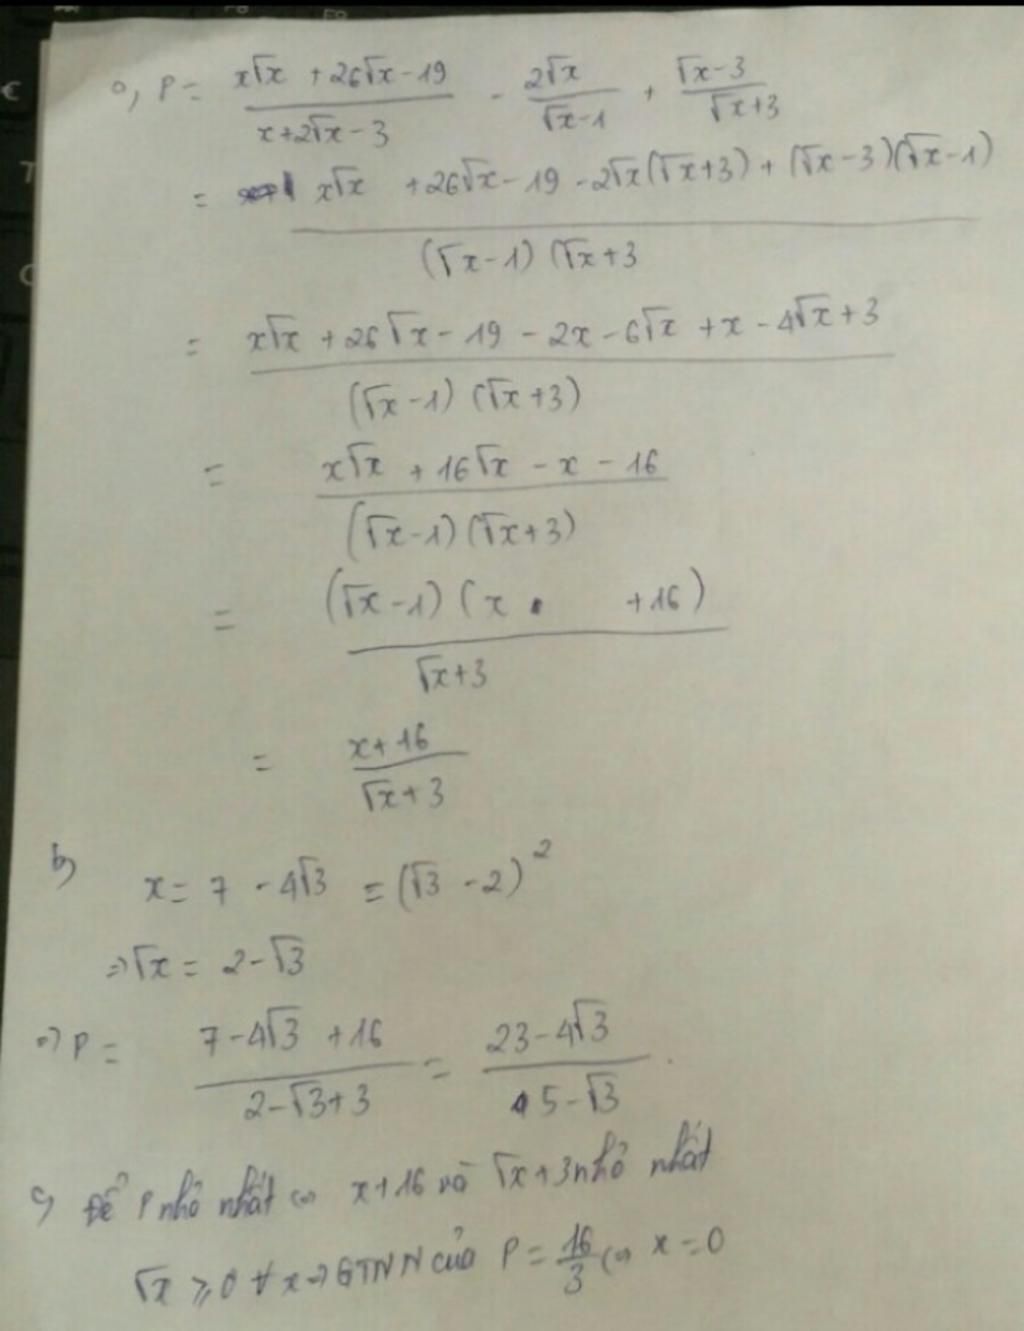 a, P = (x√x + 26√x - 19)/(x + 2√x - 3) - 2√x/(√x - 1) + (√x - 3)/(√x + 3)
= (x√x + 26√x - 19 - 2√x(√x+3) + (√x - 3)(√x - 1))/((√x - 1)(√x + 3)
= (x√x + 26√x - 19 - 2x - 6√x + x - 4√x + 3)/((√x - 1)(√x + 3))
= (x√x + 16√x - x - 16)/((√x - 1)(√x + 3))
= ((√x - 1)(x + 16))/(√x + 3)
= (x + 16)/(√x + 3)
b, x = 7 - 4√3 = (√3 - 2)²
=> √x = 2 - √3
=> P = (7 - 4√3 + 16)/(2 - √3 + 3) = (23 - 4√3)/(5 - √3)
c, Để P nhỏ nhất <=> x + 16 và √x + 3 nhỏ nhất
√x ≥ 0 ∀ x => GTNN của P = 16/3 <=> x = 0